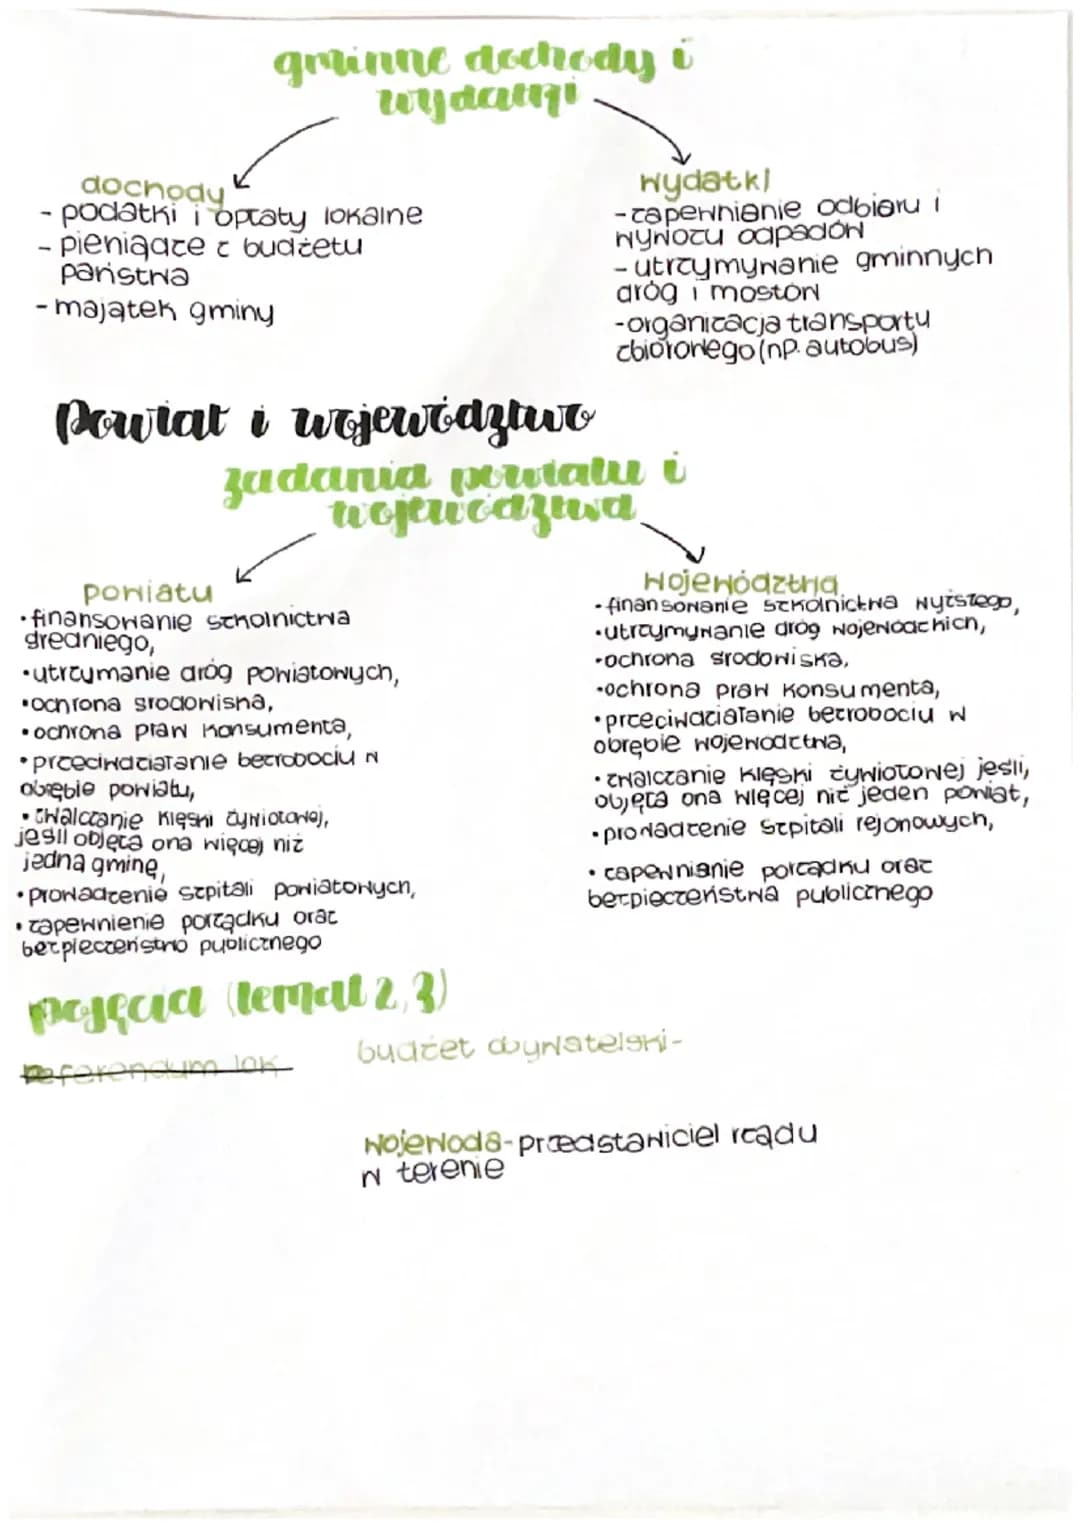 gminne dochody i
wydatki
dochody
- podatki i opłaty lokalne
- pieniądze z budżetu
państwa
- majątek gminy
wydatki
- zapewnienie odbioru i
wywozu odpadów
- utrzymywanie gminnych
dróg i mostów
- organizacja transportu
zbiorowego (np. autobus)
Powiat i województwo
zadania powiatu i
województwa
powiatu
• finansowanie szkolnictwa
średniego,
• utrzymanie dróg powiatowych,
• ochrona środowiska,
• ochrona praw konsumenta,
• przeciwdziałanie bezrobociu w
obrębie powiatu,
• zwalczanie klęski żywiołowej,
jeśli objęła ona więcej niż
jedną gminę,
• prowadzenie szpitali powiatowych,
• zapewnienie porządku oraz
bezpieczeństwo publicznego
województwa
• finansowanie szkolnictwa wyższego,
• utrzymywanie dróg wojewódzkich,
• ochrona środowiska,
• ochrona praw konsumenta,
• przeciwdziałanie bezrobociu w
obrębie województwa,
• zwalczanie klęski żywiołowej jeśli,
objęła ona więcej niż jeden powiat,
• prowadzenie szpitali rejonowych,
• zapewnianie porządku oraz
bezpieczeństwa publicznego
pojęcia (temat 2,3)
Referendum lok
budżet obywatelski-
Wojewoda- przedstawiciel rządu
w terenie